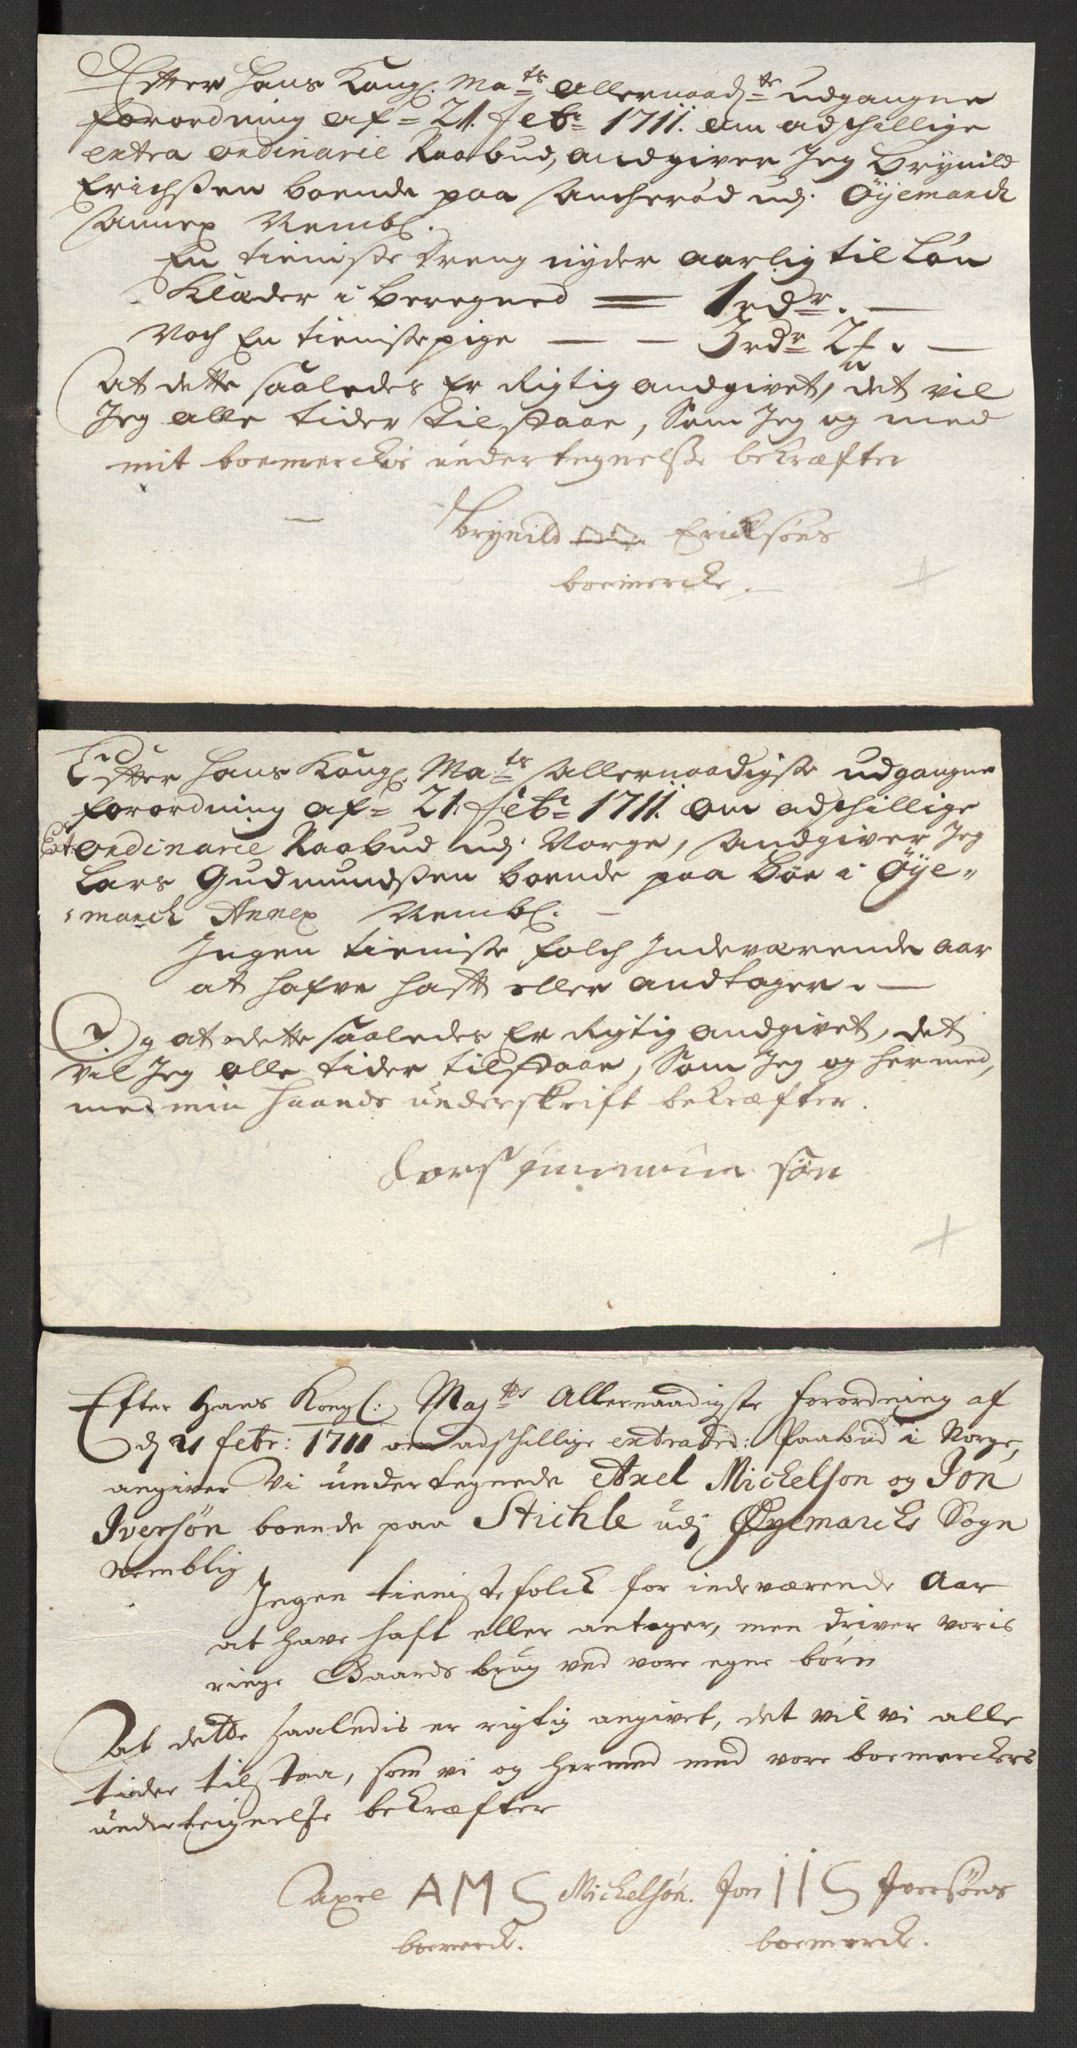 Effter Hans Kong: Maÿts allernaadste udgangne
forordning af= 21. febr: 1711. om adschillige
extra ordinarie Paabud, andgiver Jeg Brynild
Erichssen boende paa Ancherød udj Øyemarck
Annex Nembl:
En tieniste Dreng nyder aarlig til Løn
Klæder i beregned = 1 rdr. —
Noch En tienistepige — — 3 rdr 2 —
At dette saaledes Er Rigtig andgivet, det vil
Jeg alle tider tilstaae, Som Jeg og med
mit boemerckis undertegnelsse bekræfter
Brynild Ericksøns
boemercke.
Effter Hans Kong: Mats Allernaadigste udgangne
forordning af= 21. febr: 1711. om adschillige
Ext ordinarie Paabud udj Norge, Andgiver Jeg
Lars Gudmundssen boende paa Bøe i Øye=
=marck Annex Nembl: —
Ingen tieniste folch Indeværende aar
at hafve hafft eller andtager. —
Og at dette saaledes Er Rigtig andgivet, det
vil Jeg alle tider tilstaae, Som Jeg og hermed,
med min Haands underskrift bekræfter.
Lars søn
Efter Hans Kongl: Majts Allernaadigste forordning af
d 21 febr: 1711 om adschillige extraord: Paabud i Norge,
angiver Vi undertegnede Axel Mickelson og Jon
Iversøn boende paa Stichle udj Øyemarcks Sogn
Nemblig
Ingen tienistefolck for indeværende Aar
at have haft eller antager, men driver voris
ringe Gaards brug ved vore egne børn
At dette saaledis er rigtig angivet, det vil vi alle
tider tilstaa, som vi og hermed med vore boemerckers
underteignelse bekræfter
Axel AMS Mickelsøn. Jon IIS Iversøns
boemerck. boemercke.